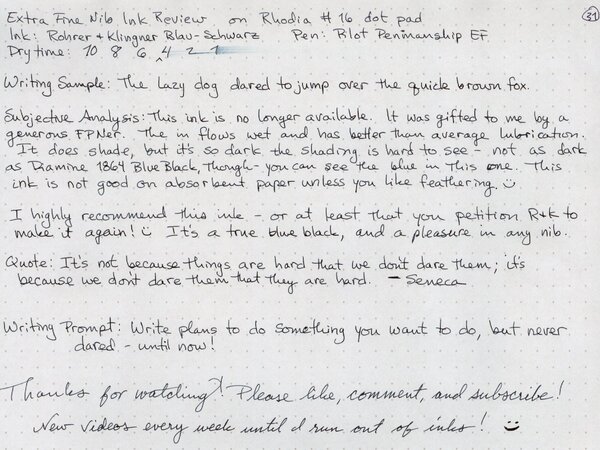 Extra Fine Nib Ink Review on Rhodia #16 dot pad
31
Ink: Rohrer + Klingner Blau-Schwarz Pen: Pilot Penmanship EF
Dry time: 10 8 6 4 2 1
Writing Sample: The lazy dog dared to jump over the quick brown fox.
Subjective Analysis: This ink is no longer available. It was gifted to me by a
generous FPNer. The in flows wet and has better than average lubrication.
It does shade, but it's so dark the shading is hard to see - not as dark
as Diamine 1864 Blue Black, though - you can see the blue in this one. This
ink is not good on absorbent paper unless you like feathering. ☺
I highly recommend this ink - or at least that you petition R+K to
make it again! ☺ It's a true blue black, and a pleasure in any nib.
Quote: It's not because things are hard that we don't dare them; it's
because we don't dare them that they are hard. - Seneca
Writing Prompt: Write plans to do something you want to do, but never
dared - until now!
Thanks for watching! Please like, comment, and subscribe!
New videos every week until I run out of inks! ☺